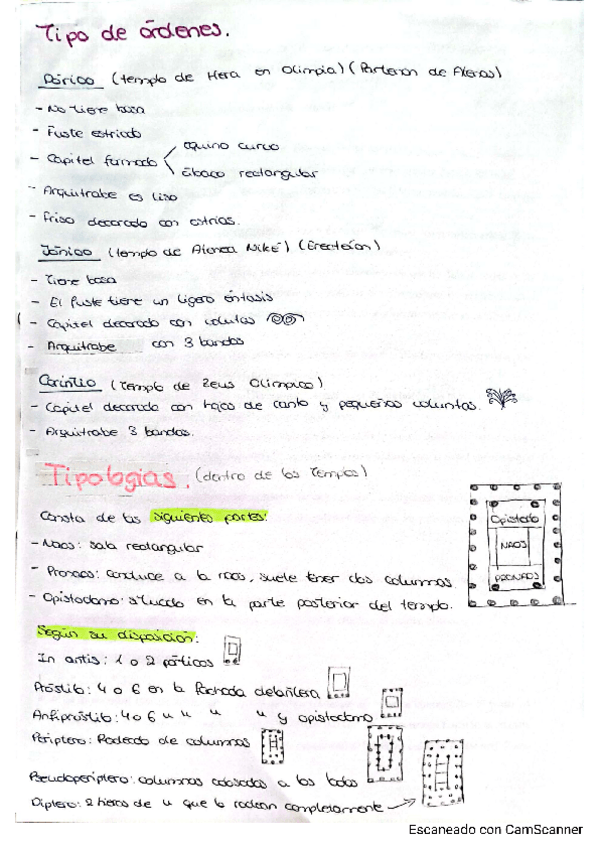 Tipo de órdenes.
Dórico (templo de Hera en Olimpia) (Partenon de Atenas)
- No tiene basa
- Fuste estriado
- Capitel formado
equino curvo
ábaco rectangular
- Arquitrabe es liso
- Friso decorado con estrias.
Jónico (templo de Atenea Niké) (Erecteion)
- Tiene basa
- El fuste tiene un ligero éntasis
- Capitel decorado con volutas
- Arquitrabe con 3 bandas
Corintio (Templo de Zeus Olimpico)
- Capitel decorado con hojas de canto y pequeñas voluntas.
- Arquitrabe 3 bandas.
Tipologías. (dentro de los templos)
Consta de las siguientes partes:
- Naos: sala rectangular
- Pronaos: conduce a la naos, suele tener dos columnas.
- Opistodomo: situado en la parte posterior del templo.
Opistodo
NAOS
PRONAOS
Según su disposición:
In antis: 1 o 2 pórticos
Próstilo: 4 o 6 en la fachada delantera
Anfipróstilo: 4 o 6 u u u u y opistodomo
Períptero: Rodeado de columnas
Pseudoperiptero: columnas adosadas a los lados
Diptero: 2 hileras de u que lo rodean completamente
Escaneado con CamScanner